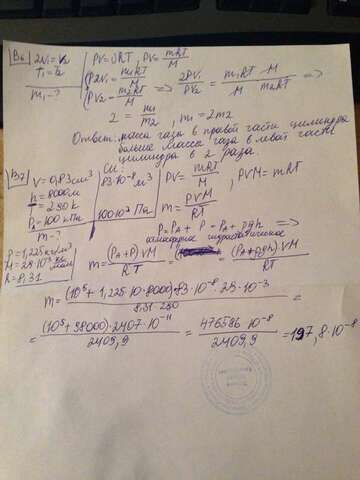 B6
2V₁ = V₂
T₁ = T₂
m₁ - ?
PV = νRT, PV = mRT/M
P2V₁ = m₁RT/M
PV₂ = m₂RT/M
=> 2PV₁/PV₂ = m₁RT M/M m₂RT =>
2 = m₁/m₂, m₁ = 2m₂
Ответ: масса газа в правой части цилиндра
больше массы газа в левой части
цилиндра в 2 раза.
B7
V = 0,83 см³
h = 8000 м
= 290 k
Pₐ = 100 кПа
m - ?
ρ = 1,225 кг/м³
R = 8,31
Си:
83·10⁻⁸ м³
100·10³ Па
PV = mRT/M, PVM = mRT
m = PVM/RT
P = Pₐ + P = Pₐ + ρgh =>
атмосферное гидростатическое
m = (Pₐ + P)VM/RT = (Pₐ + ρgh)VM/RT
m = (10⁵ + 1,225·10·8000)·83·10⁻⁸·29·10⁻³/8,31·290 =
= (10⁵ + 98000)·2407·10⁻¹¹/2409,9 = 476586·10⁻⁸/2409,9 = 197,8·10⁻⁸